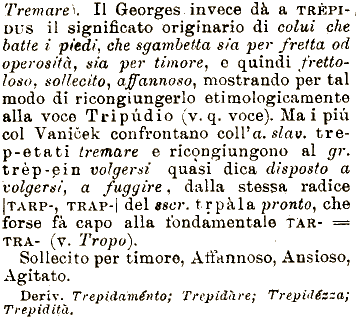 Tremare). Il Georges invece dà a TRÈPI-
DUS il significato originario di colui che
batte i piedi, che sgambetta sia per fretta od
operosità, sia per timore, e quindi fretto-
loso, sollecito, affannoso, mostrando per tal
modo di ricongiungerlo etimologicamente
alla voce Tripúdio (v. q. voce). Ma i più
col Vaniček confrontano coll'a. slav. tre-
p-etati tremare e ricongiungono al gr.
trèp-ein volgersi quasi dica disposto a
volgersi, a fuggire, dalla stessa radice
|TARP-, TRAP-| del sscr. tṛpàla pronto, che
forse fà capo alla fondamentale TAR- =
TRA- (v. Tropo).
Sollecito per timore, Affannoso, Ansioso,
Agitato.
Deriv. Trepidaménto; Trepidàre; Trepidézza;
Trepidità.